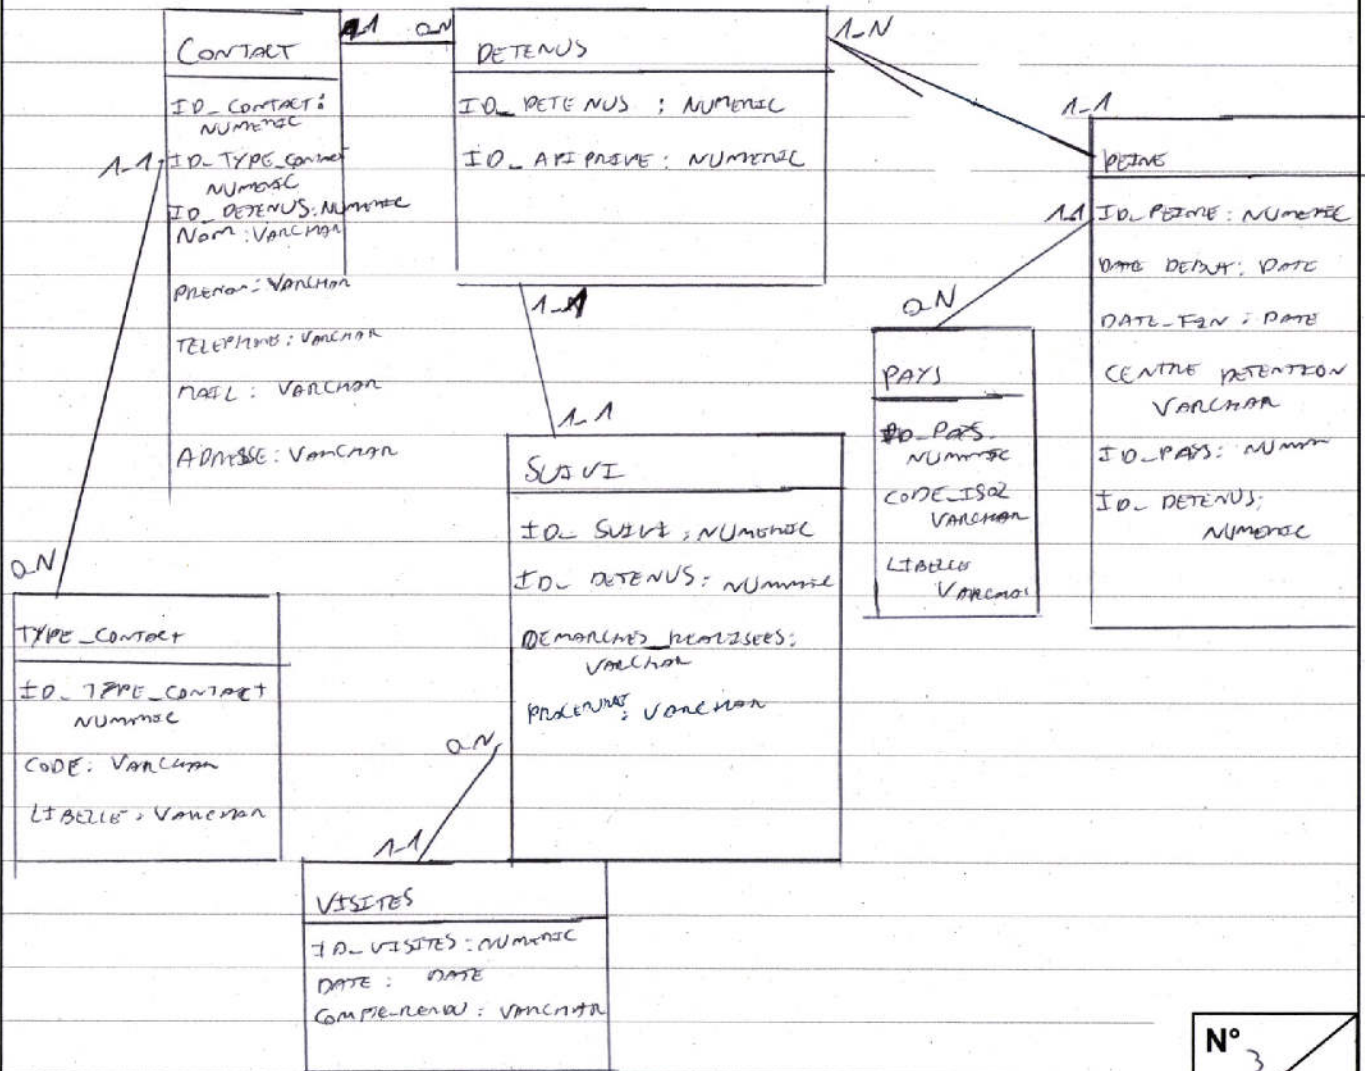 CONTACT
ID_CONTACT:
NUMERIC
ID_TYPE_CONTACT
NUMERIC
ID_DETENUS: NUMERIC
NOM: VARCHAR
PRENOM: VARCHAR
TELEPHONE: VARCHAR
MAIL: VARCHAR
ADRESSE: VARCHAR
1-1
0-N
DETENUS
ID_DETENUS: NUMERIC
ID_API PRIVE: NUMERIC
1-N
1-1
PEINE
ID_PEINE: NUMERIC
DATE DEBUT: DATE
DATE_FIN: DATE
CENTRE DETENTION
VARCHAR
ID_PAYS: NUM
ID_DETENUS:
NUMERIC
1-1
0-N
PAYS
ID_PAYS
NUMERIC
CODE_ISO2
VARCHAR
LIBELLE
VARCHAR
1-1
1-1
SUIVI
ID_SUIVI: NUMERIC
ID_DETENUS: NUMERIC
DEMARCHES_REALISEES:
VARCHAR
: VARCHAR
1-1
0-N
TYPE_CONTACT
ID_TYPE_CONTACT
NUMERIC
CODE: VARCHAR
LIBELLE: VARCHAR
0-N
1-1
VISITES
ID_VISITES: NUMERIC
DATE: DATE
COMPTE-RENDU: VARCHAR
N° 3